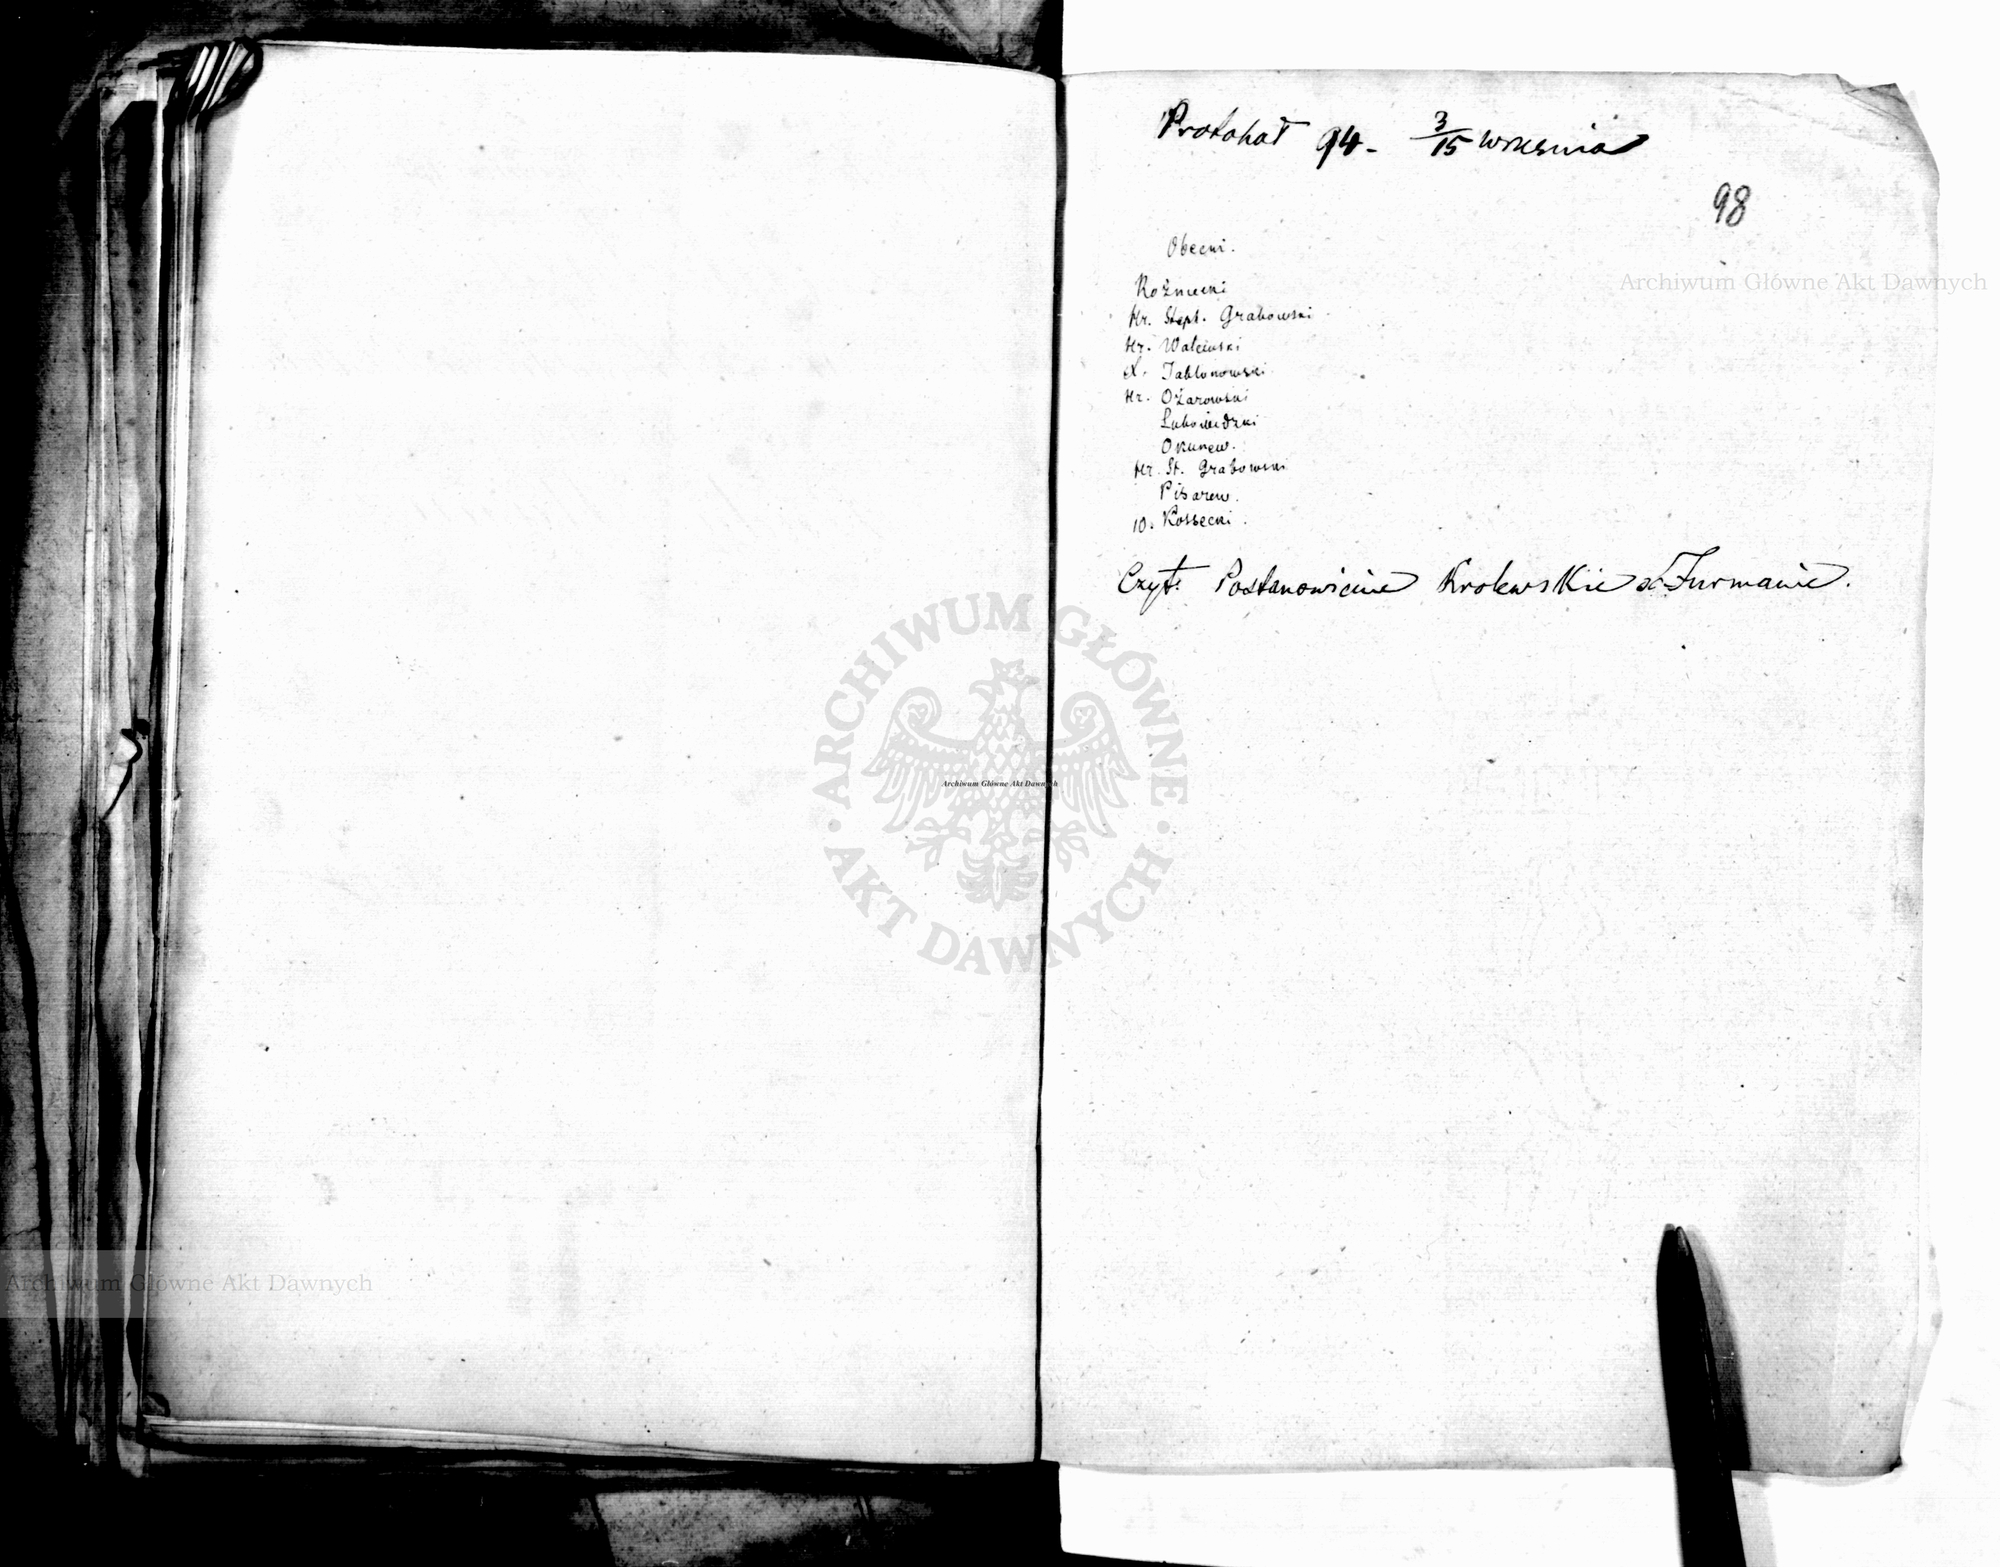 Protokał 94. 3/15 wrzesnia
98
Archiwum Główne Akt Dawnych
Obecni.
Rożniecki
Hr. Steph. Grabowski
Hr. Walewski
X. Jabłonowski
Hr. Ożarowski
Lubowidzki
Okunew.
Hr. St. Grabowski
Pisarew.
10. Kossecki.
Czyt: Postanowienie Krolewskie o Furmanie.
ARCHIWUM GŁÓWNE
Archiwum Główne Akt Dawnych
AKT DAWNYCH
Archiwum Główne Akt Dawnych